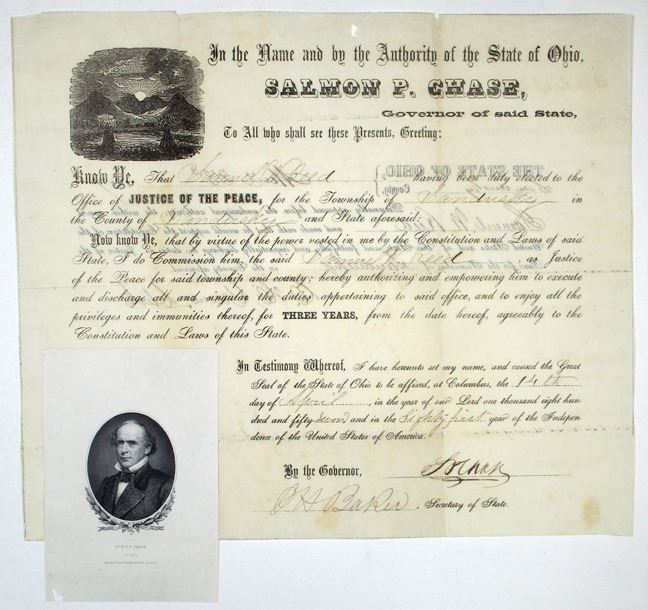 In the Name and by the Authority of the State of Ohio.
SALMON P. CHASE,
Governor of said State,
To All who shall see these Presents, Greeting:
Know Ye, That having been duly elected to the
Office of JUSTICE OF THE PEACE, for the Township of Sandusky in
the County of and State aforesaid:
Now know Ye, that by virtue of the power vested in me by the Constitution and Laws of said
State, I do Commission him, the said , as Justice
of the Peace for said township and county; hereby authorizing and empowering him to execute
and discharge all and singular the duties appertaining to said office, and to enjoy all the
privileges and immunities thereof, for THREE YEARS, from the date hereof, agreeably to the
Constitution and Laws of this State.
In Testimony Whereof, I have hereunto set my name, and caused the Great
Seal of the State of Ohio to be affixed, at Columbus, the 14th
day of April , in the year of our Lord one thousand eight hun-
dred and fifty-seven and in the Eighty first year of the Indepen-
dence of the United States of America.
By the Governor, S P Chase
Baker , Secretary of State.
THE STATE OF OHIO
County